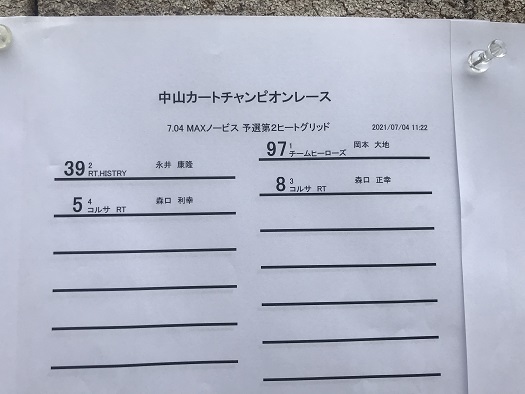 中山カートチャンピオンレース
7.04 MAXノービス 予選第2ヒートグリッド 2021/07/04 11:22
97 1 岡本 大地
チームヒーローズ
39 2 永井 康隆
RT.HISTRY
8 3 森口 正幸
コルサ RT
5 4 森口 利幸
コルサ RT